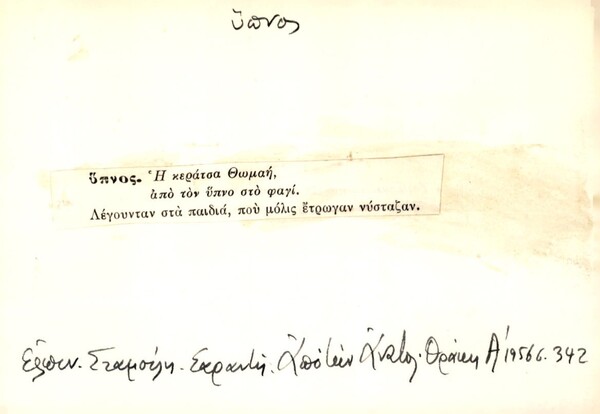 ὕπνος
ὕπνος. Ἡ κεράτσα Θωμαή,
ἀπὸ τὸν ὕπνο στὸ φαγί.
Λέγουνταν στὰ παιδιά, ποὺ μόλις ἔτρωγαν νύσταζαν.
Ἐλπιν. Σταμούλη. Σαραντῆ. Ἀπὸ τὴν Ἀνατολ. Θράκη Α' 1956 σ. 342